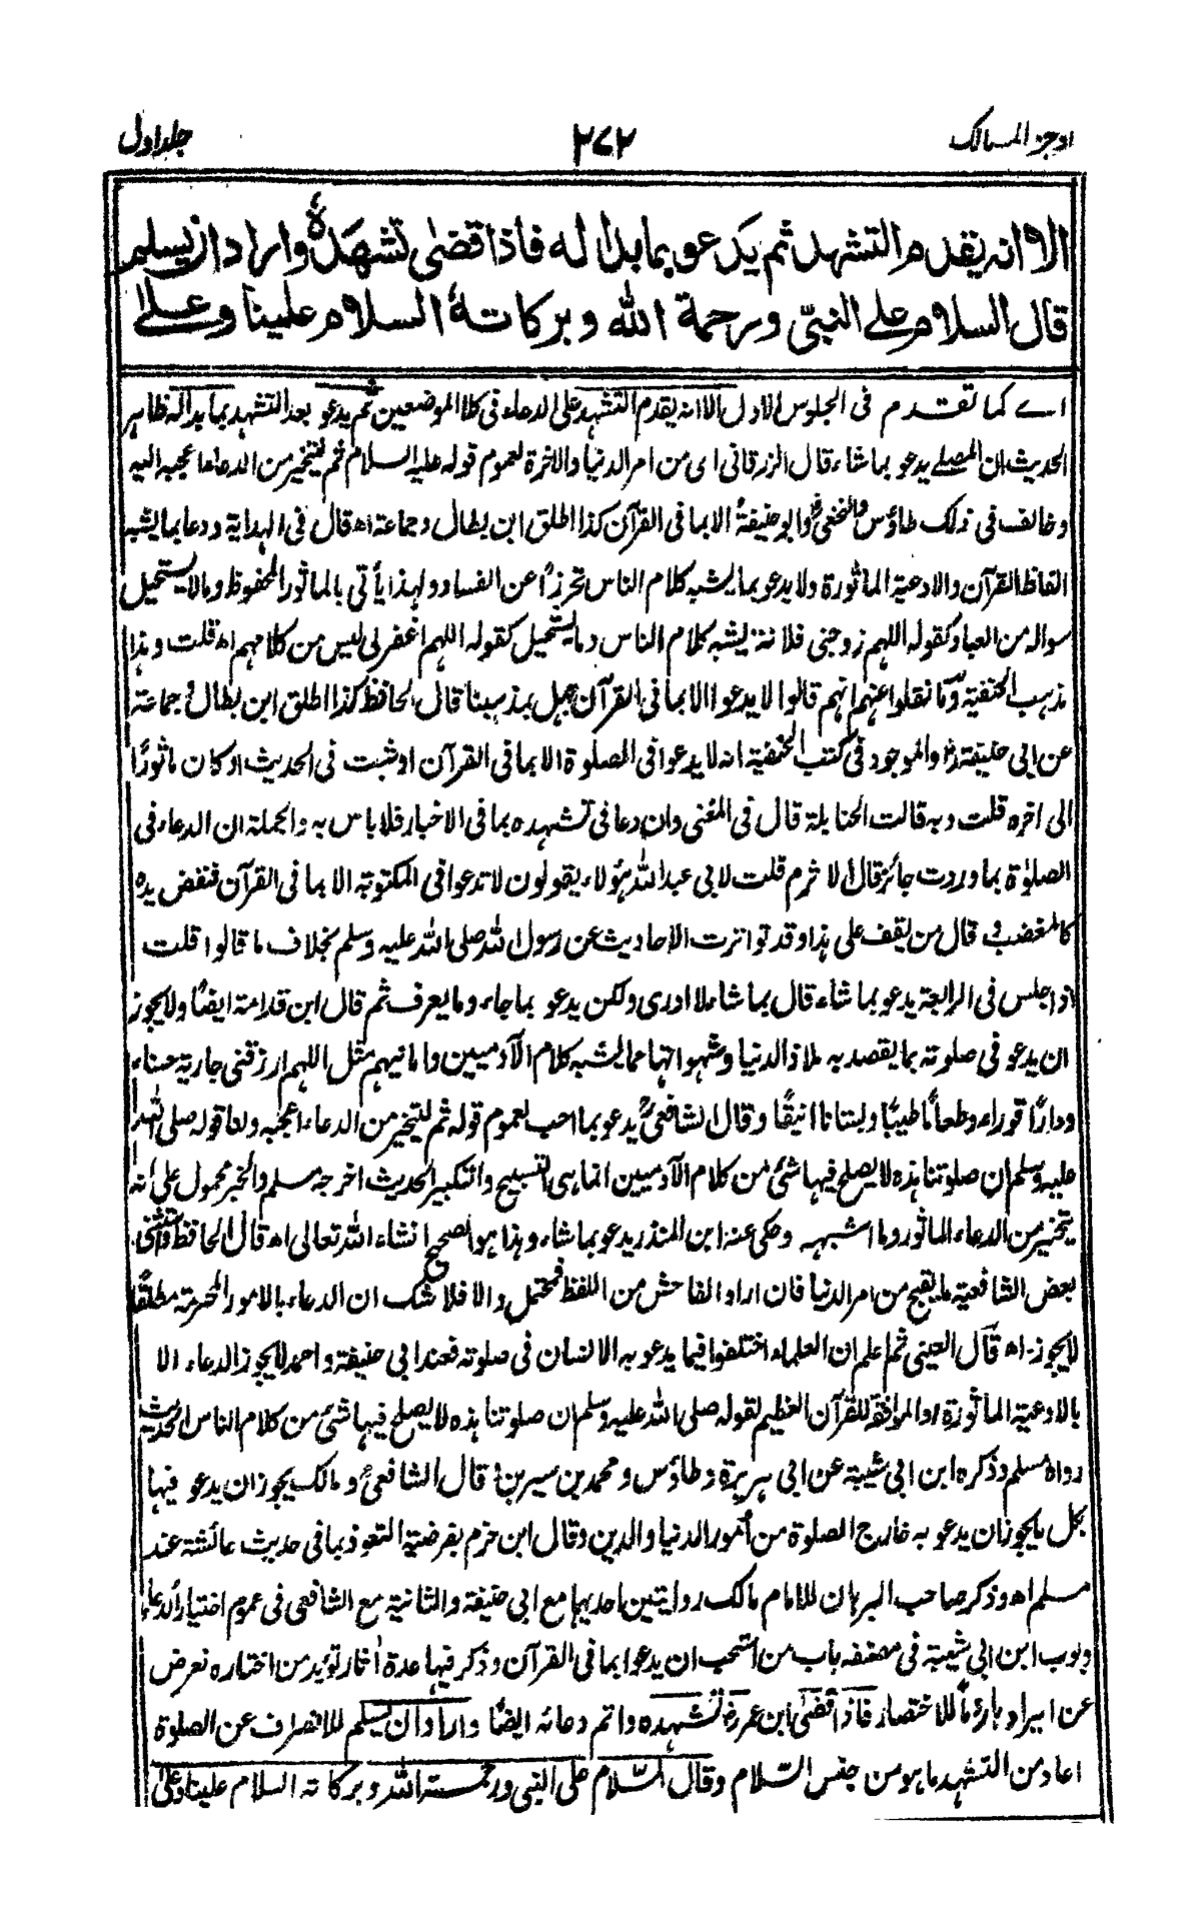 اوجز المسالک
۲۷۲
جلد اول
الا انه يقدم التشهد ثم يدعو بما بدا له فاذا قضى تشهده واراد ان يسلم
قال السلام على النبي ورحمة الله وبركاته السلام علينا وعلى
اے كما تقدم فى الجلوس الاول الا انه يقدم التشهد على الدعاء فى كلا الموضعين ثم يدعو بعد التشهد بما بدا له ظاهر
الحديث ان المصلے يدعو بما شاء قال الزرقانى اى من امر الدنيا والاخرة لعموم قوله عليه السلام ثم ليتخير من الدعاء ما اعجبه اليه
وخالف فى ذلك طاؤس والنخعى وابو حنيفة الا بما فى القرآن كذا اطلق ابن بطال وجماعة اه قال فى الهداية ودعا بما يشبه
الفاظ القرآن والادعية الماثورة ولا يدعو بما يشبه كلام الناس تحرزا عن الفساد ولهذا يأتى بالماثور المحفوظ وما لا يستحيل
سواله من العباد كقوله اللهم زوجنى فلانة يشبه كلام الناس وما يستحيل كقوله اللهم اغفر لى ليس من كلامهم اه قلت وهذا
مذهب الحنفية وما نقلوا عنهم انهم قالوا لا يدعوا الا بما فى القرآن جهل بمذهبنا قال الحافظ كذا اطلق ابن بطال وجماعة
عن ابى حنيفة والموجود فى كتب الحنفية انه لا يدعو فى الصلوة الا بما فى القرآن او ثبت فى الحديث او كان ماثورًا
الى اخره قلت وبه قالت الحنابلة قال فى المغنى وان دعا فى تشهده بما فى الاخبار فلا باس به والجملة ان الدعاء فى
الصلوٰة بما وردت جائز قال الاثرم قلت لابى عبد الله هؤلاء يقولون لا تدعو فى المكتوبة الا بما فى القرآن فنفض يده
كالمغضب قال من يقف على هذا وقد تواترت الاحاديث عن رسول الله صلى الله عليه وسلم بخلاف ما قالوا قلت
اذا جلس فى الرابعة يدعو بما شاء قال بما شاء لا ادرى ولكن يدعو بما جاء وما يعرف ثم قال ابن قدامة ايضًا ولا يجوز
ان يدعو فى صلوته بما يقصد به ملاذ الدنيا وشهواتها مما يشبه كلام الآدميين وامانيهم مثل اللهم ارزقنى جارية حسناء
ودارًا قوراء وطعامًا طيبًا وبستانا انيقًا وقال الشافعى يدعو بما احب لعموم قوله ثم ليتخير من الدعاء اعجبه ولنا قوله صلى الله
عليه وسلم ان صلوتنا هذه لا يصلح فيها شئ من كلام الآدميين انما هى التسبيح والتكبير الحديث اخرجه مسلم والخبر محمول على انه
يتخير من الدعاء الماثور وما اشبهه وحكى عنه ابن المنذر يدعو بما شاء وهذا هو الصحيح انشاء الله تعالى اه قال الحافظ واستثنى
بعض الشافعية ما يقبح من امر الدنيا فان اراد الفاحش من اللفظ فمحتمل والا فلا شك ان الدعاء بالامور المحرمة مطلقًا
لا يجوز اه قال العينى ثم اعلم ان العلماء اختلفوا فيما يدعو به الانسان فى صلوته فعند ابى حنيفة واحمد لا يجوز الدعاء الا
بالادعية الماثورة او الموافقة للقرآن العظيم لقوله صلى الله عليه وسلم ان صلوتنا هذه لا يصلح فيها شئ من كلام الناس الحديث
رواه مسلم وذكره ابن ابى شيبة عن ابى هريرة وطاؤس ومحمد بن سيرين قال الشافعى ومالك يجوز ان يدعو فيها
بكل ما يجوز ان يدعو به خارج الصلوة من امور الدنيا والدين وقال ابن حزم بفرضية التعوذ بما فى حديث عائشة عند
مسلم اه وذكر صاحب البرهان للامام مالك روايتين احديهما مع ابى حنيفة والثانية مع الشافعى فى عموم اختيار الدعاء
وبوب ابن ابى شيبة فى مصنفه باب من استحب ان يدعوا بما فى القرآن وذكر فيها عدة اٰثار تؤيد من اختاره نعرض
عن ايرادها رومًا للاختصار فاذا قضى ابن عمر تشهده واتم دعائه ايضًا واراد ان يسلم للانصراف عن الصلوة
اعاد من التشهد ما هو من جنس السلام وقال السّلام على النبى ورحمة الله وبركاته السلام علينا وعلى